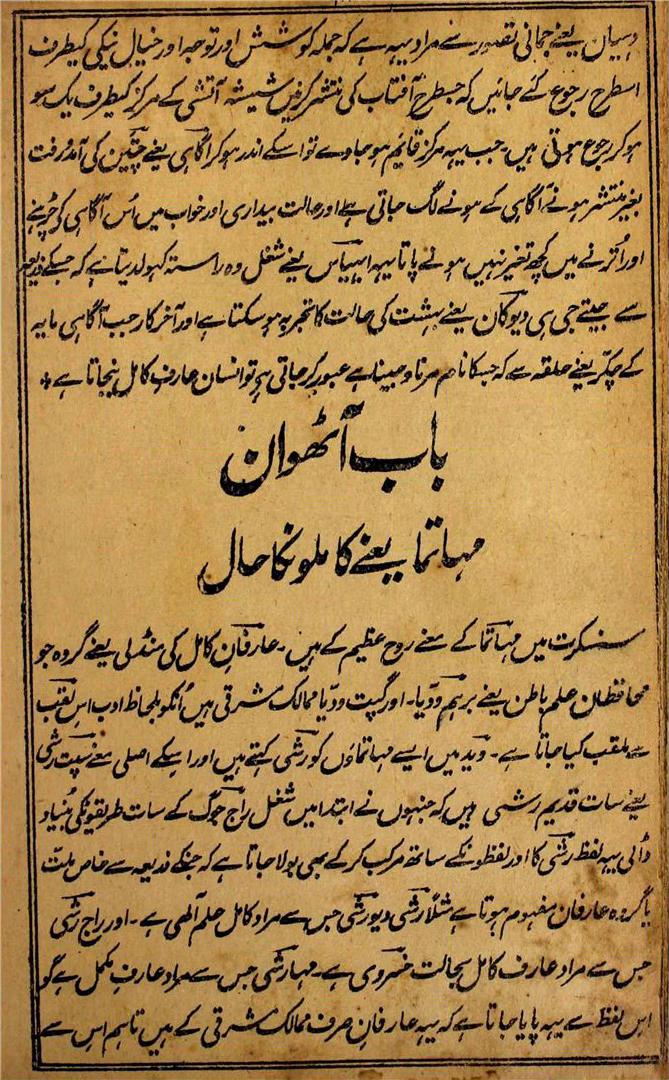 دہیان یعنے جمانی تصور سے مراد یہہ ہے کہ جملہ کوشش اور توجہ اور خیال نیکی کیطرف
اسطرح رجوع کئے جائیں کہ جسطرح آفتاب کی منتشر کرنیں شیشہ آتشی کے مرکز کیطرف یک سو
ہوکر رجوع ہوتی ہیں۔ جب یہہ مرکز قائیم ہوجاوے تو اسکے اندر ہوکر آگاہی یعنے چتین کی آمدرفت
بغیر منتشر ہونے آگاہی کے ہونے لگ جاتی ہے اور حالت بیداری اور خواب میں اُس آگاہی کو چڑہنے
اور اُترنے میں کچھ تغیر نہیں ہونے پاتا یہہ ابہیاس یعنے شغل وہ راستہ کہولدیتا ہے کہ جسکے ذریعہ
سے جیتے جی ہی دیوکان یعنے بہشت کی حالت کا تجربہ ہوسکتا ہے اور آخرکار جب آگاہی مایہ
کے چکر یعنے حلقہ سے کہ جسکا نام مرنا و جینا ہے عبور کرجاتی ہے تو انسان عارف کامل بنجاتا ہے +
باب آٹھوان
مہاتما یعنے کاملونکا حال
سنسکرت میں مہاتما کے معنے روح عظیم کے ہیں۔ عارفانِ کامل کی منڈلی یعنے گروہ جو
محافظان علم باطن یعنے برہم ودّیا۔ اور گپت ودّیا ممالک مشرقی ہیں اُنکو بلحاظ ادب اس لقب
سے ملقب کیا جاتا ہے۔ وید میں ایسے مہاتماؤں کو رشی کہتے ہیں اور اسکے اصلی معنے سپت رشی
یعنے سات قدیم رشی ہیں کہ جنہوں نے ابتدا میں شغل راج جوگ کے سات طریقونکی بُنیاد
ڈالی یہہ لفظ رشی کا اور لفظونکے ساتھ مرکب کرکے بھی بولا جاتا ہے کہ جنکے ذریعہ سے خاص ملت
یا گروہ عارفان مفہوم ہوتا ہے مثلاً رشی دیورشی جس سے مراد کامل علم الٰہی ہے۔ اور راج رشی
جس سے مراد عارف کامل بحالت خسروی ہے۔ مہارشی جس سے مراد عارف مکمل ہے گو
اس لفظ سے یہہ پایا جاتا ہے کہ یہہ عارفان صرف ممالک مشرقی کے ہیں تاہم اس سے